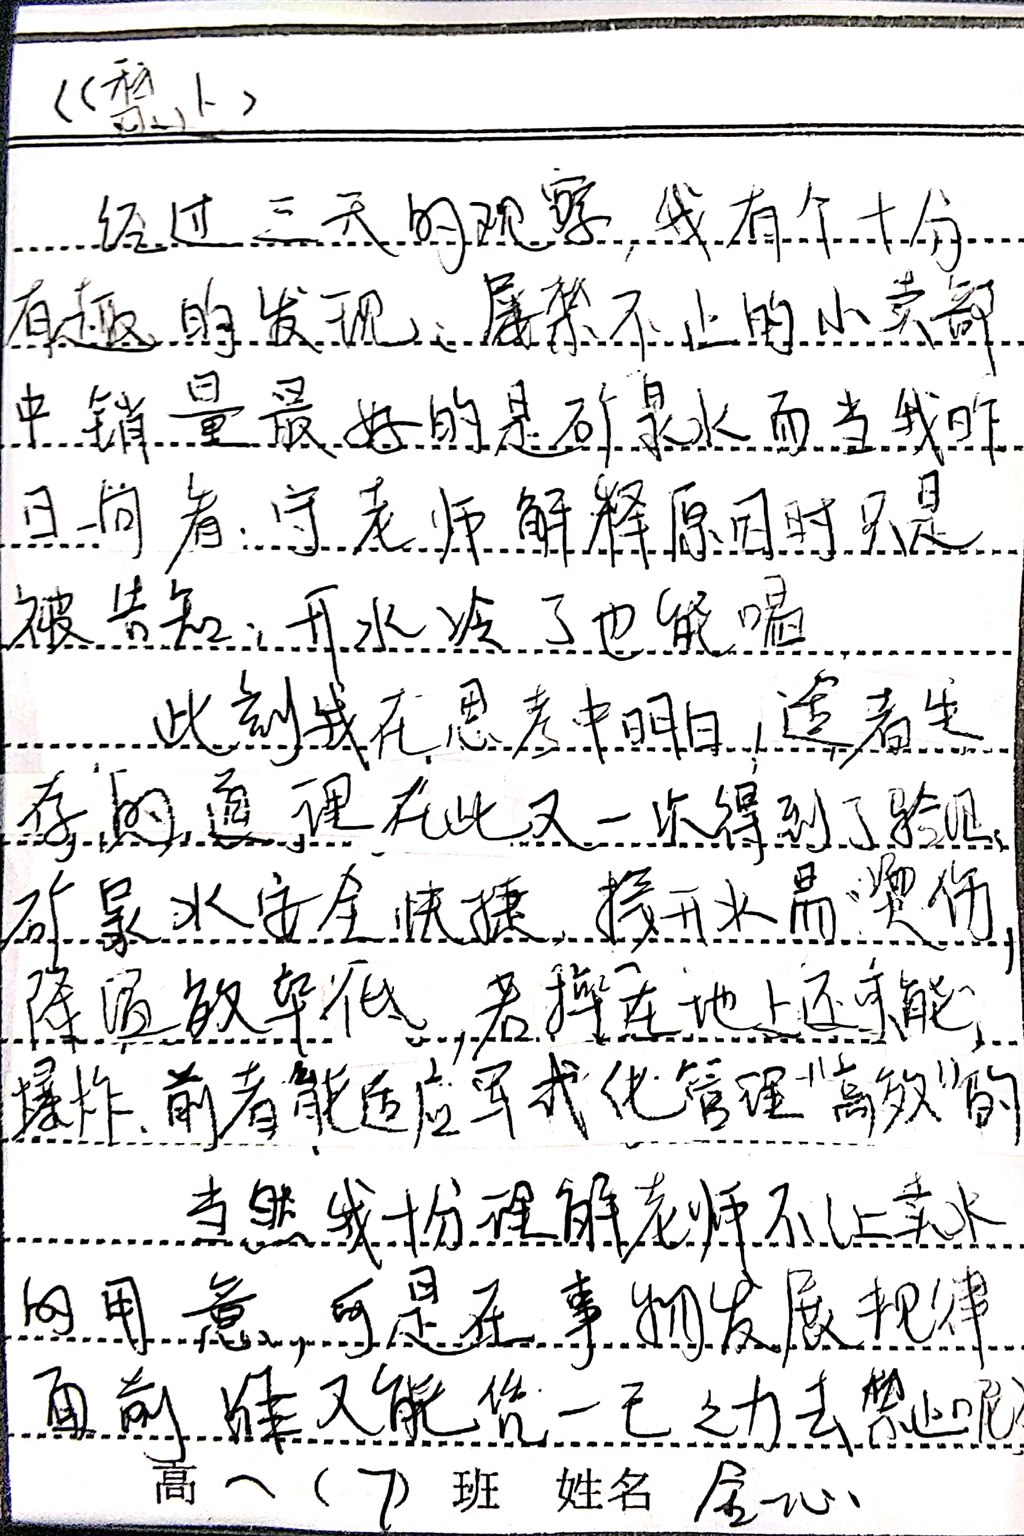 经过三天的观察,我有个十分
有趣的发现:屡禁不止的小卖部
中销量最好的是矿泉水而当我昨
日向者.守老师解释原因时只是
被告知:开水冷了也能喝
此刻我在思考中明白,适者生
存的道理在此又一次得到了验证:
矿泉水安全快捷,接开水易烫伤,
降温效率低,若摔在地上还可能
爆炸.前者能适应军式化管理"高效"的
当然我十分理解老师不让卖水
的用意,可是在事物发展规律
面前谁又能凭一己之力去禁止呢?
高一(7)班 姓名 金一心